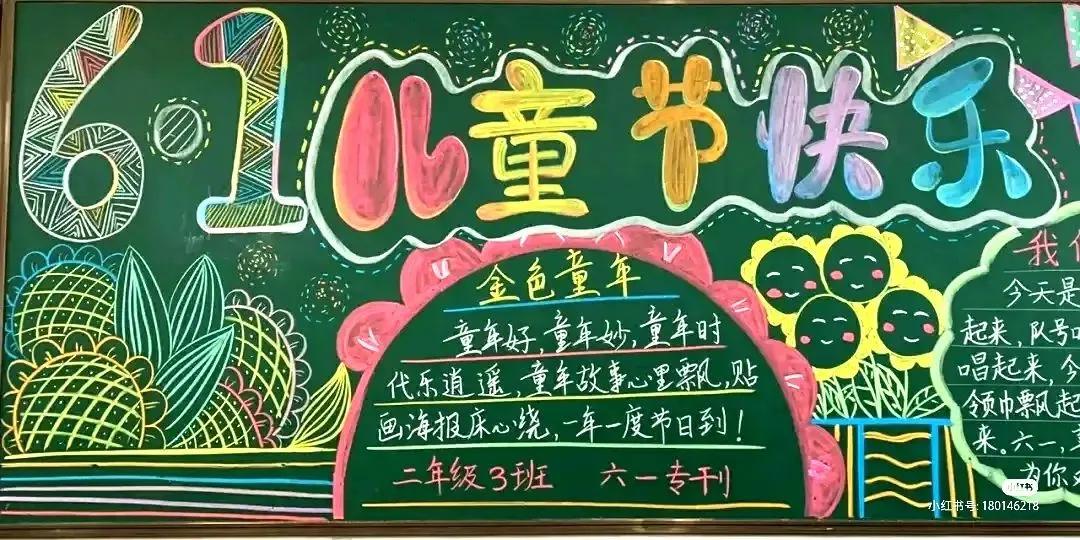 6·1
儿童节快乐
金色童年
童年好,童年妙,童年时
代乐逍遥,童年故事心里飘,贴
画海报床心绕,一年一度节日到!
二年级3班 六一专刊
我
今天是
起来,队号
唱起来,今
领巾飘起
来。六一,
为你
小红书
小红书号: 180146218